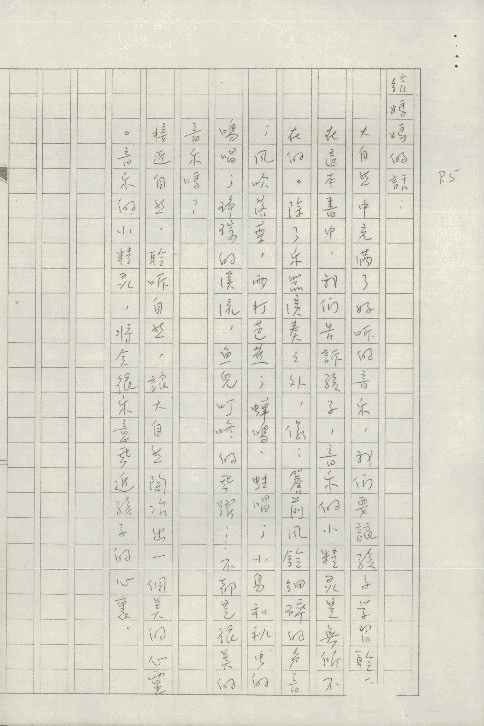 P.5
給媽媽的話:
大自然中充满了好听的音乐，我们要讓孩子学習聆，
在這本書中，我们告訴孩子，音乐的小精灵是無所不
在的。除了乐器演奏之外，像：簷前風铃細碎的声音
；風吹落葉，雨打芭蕉；蟬鳴、蛙唱；小鳥和秋虫的
鳴唱；琤琮的溪流，魚兒叮咚的跳躍……不都是很美的
音乐嗎？
接近自然，聆听自然，讓大自然陶冶出一個美的心靈
。音乐的小精灵，將会很乐意跳進孩子的心裏。